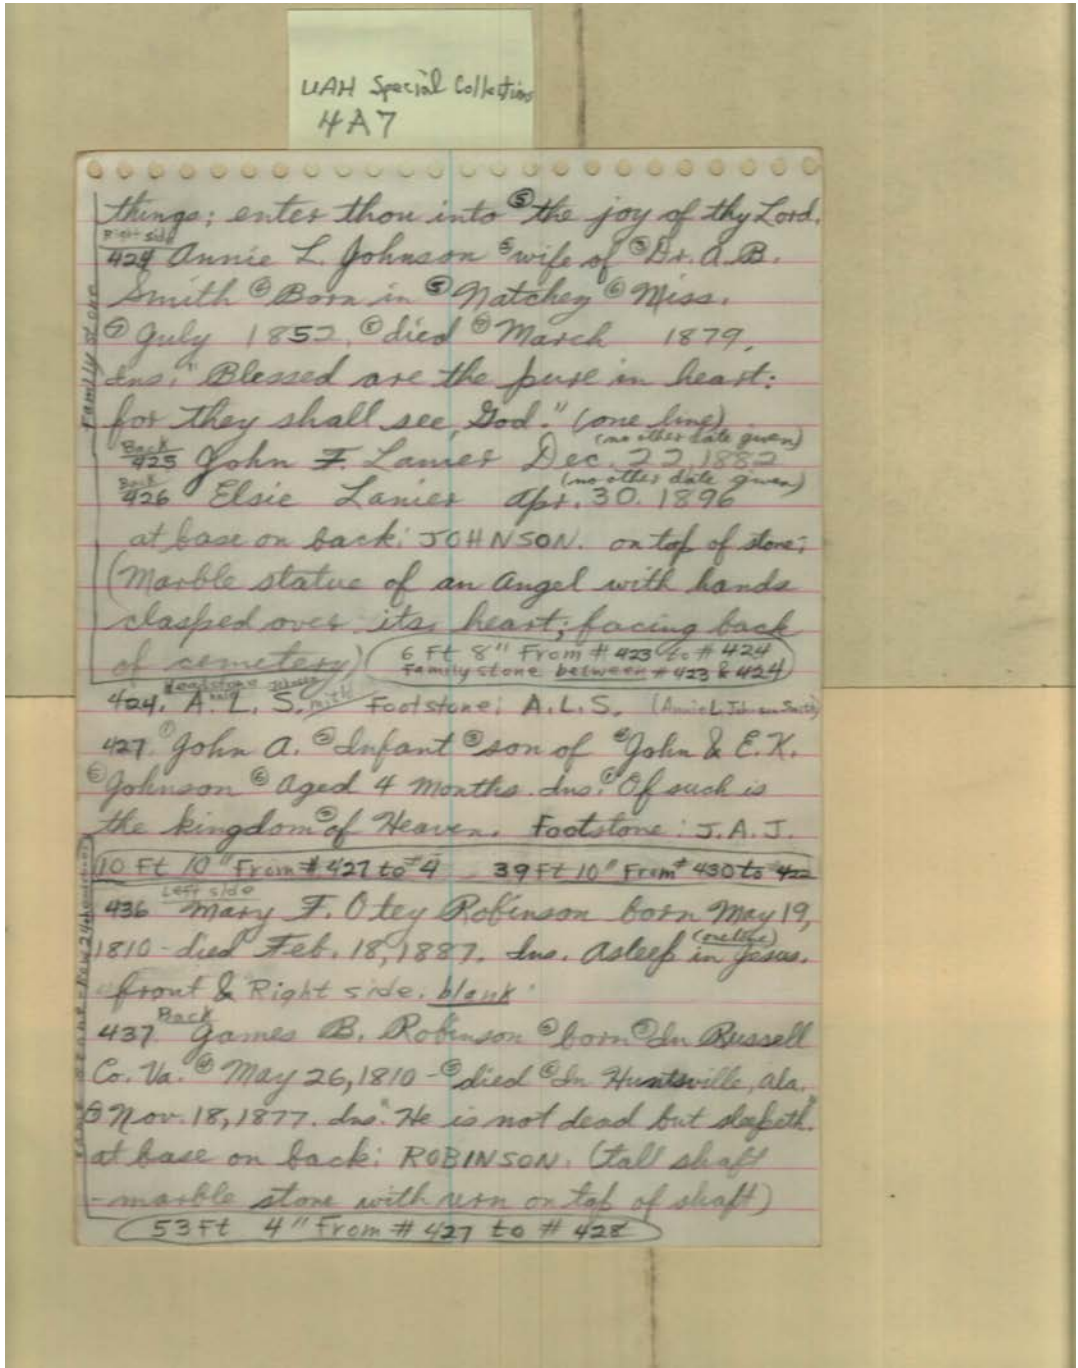 UAH Special Collections
4A7
things; enter thou into ⑤ the joy of thy Lord.
Right side
424 Annie L. Johnson ② wife of ③ Dr. A.B.
Smith ④ Born in ⑤ Natchey ⑥ Miss.
⑦ July 1852. ⑧ died ⑨ March 1879.
Ins. "Blessed are the pure in heart:
for they shall see God." (one line)
Back (no other date given)
425 John F. Lanier Dec. 22, 1882
Back (no other date given)
426 Elsie Lanier Apr. 30. 1896
at base on back: JOHNSON. on top of stone;
(Marble statue of an Angel with hands
clasped over its heart; facing back
of cemetery) (6 Ft 8" From # 423 to # 424
Family stone between # 423 & 424)
Family stone
Headstone
424. A. L. S. Footstone: A.L.S. (Annie L. Johnson Smith)
427. ① John A. ② Infant ③ son of ④ John & E.K.
⑤ Johnson ⑥ Aged 4 Months. Ins. ① Of such is
the kingdom ② of Heaven. Footstone: J.A.J.
10 Ft 10" From # 427 to # 4 39 Ft 10" From # 430 to # 422
Left side
436 Mary F. Otey Robinson born May 19,
(one line)
1810 - died Feb. 18, 1887. Ins. Asleep in Jesus.
front & Right side. blank
Back
437 James B. Robinson ② born ③ In Russell
Co. Va. ④ May 26, 1810 - ⑤ died ⑥ In Huntsville, Ala.
⑦ Nov. 18, 1877. Ins. "He is not dead but sleepeth."
at base on back: ROBINSON. (tall shaft
- marble stone with urn on top of shaft)
53 Ft 4" From # 427 to # 428